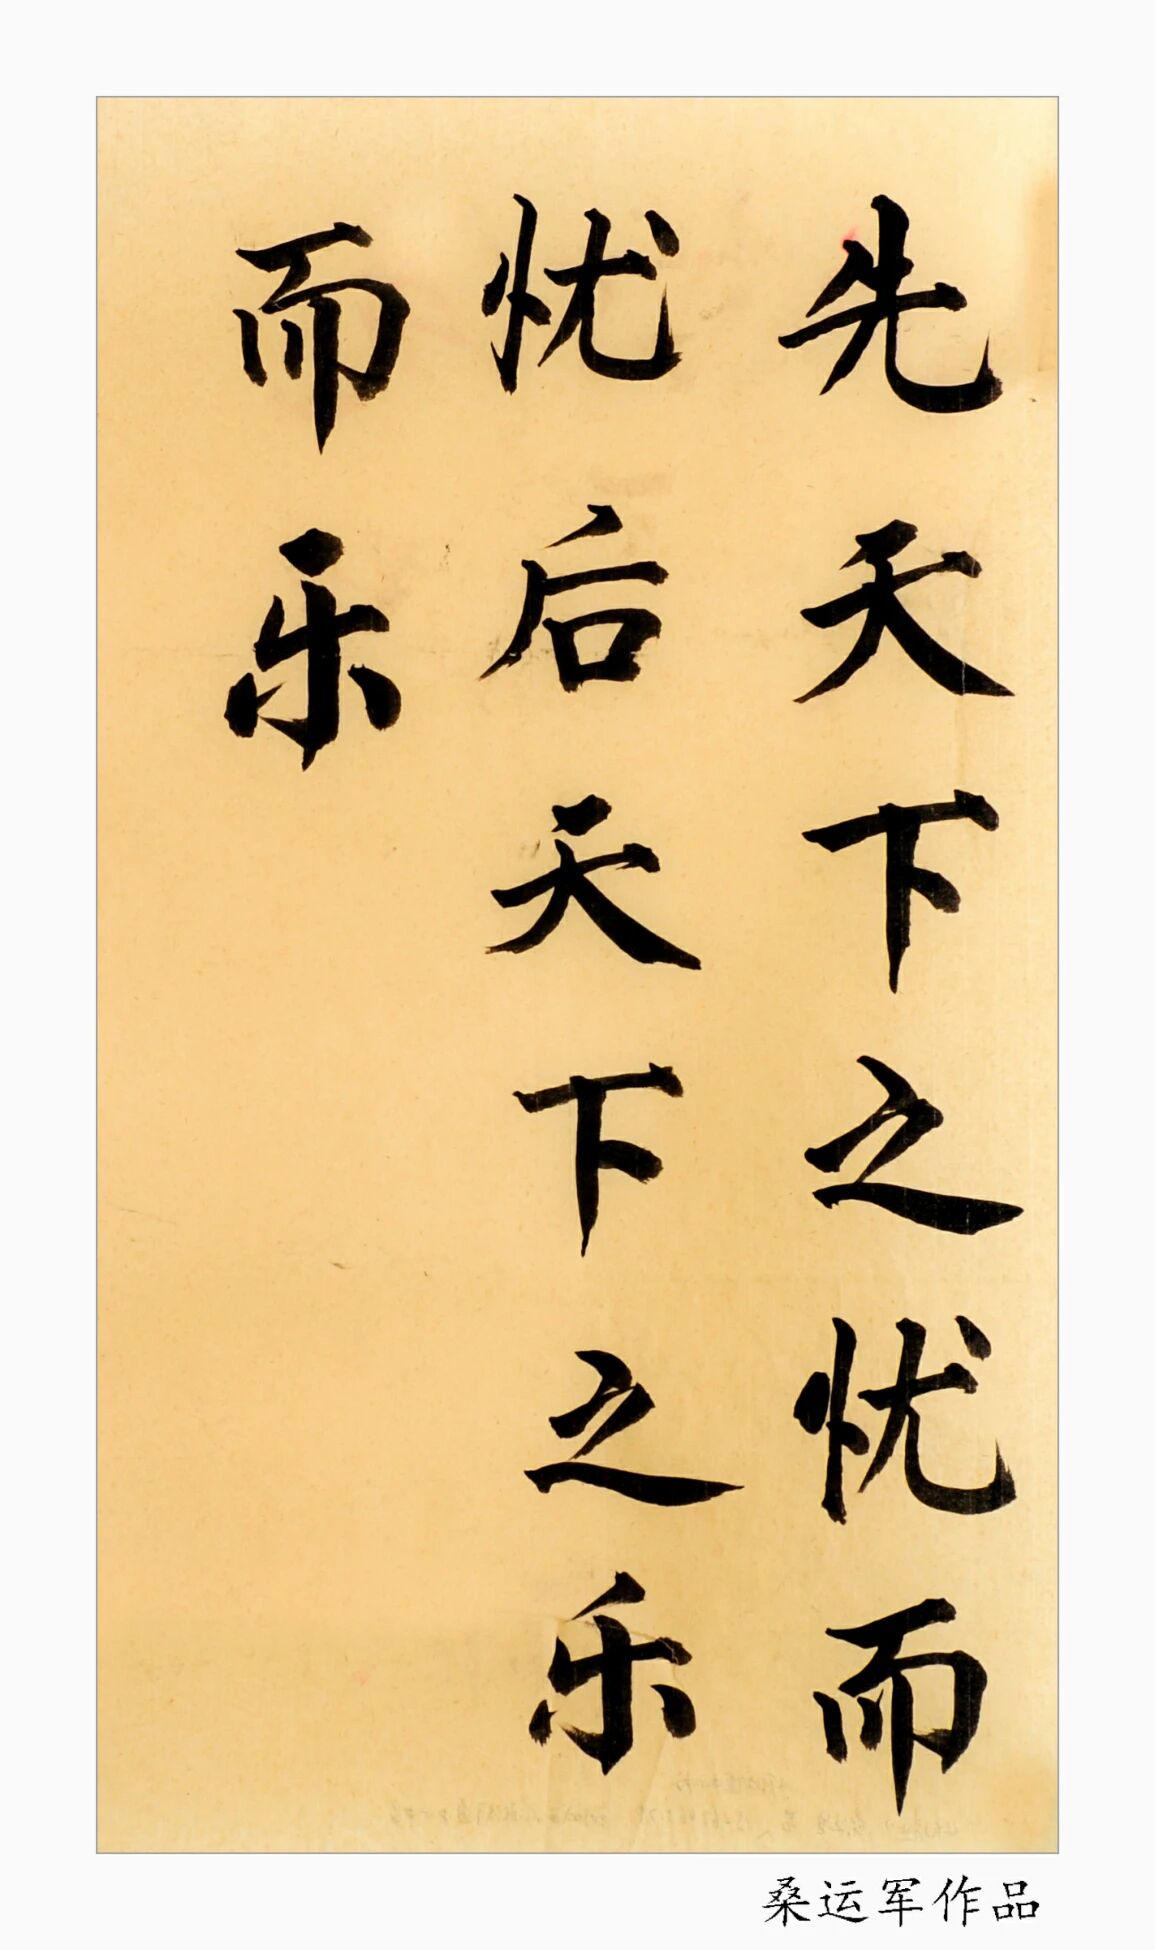 先天下之忧而
忧后天下之乐
而乐
桑运军作品